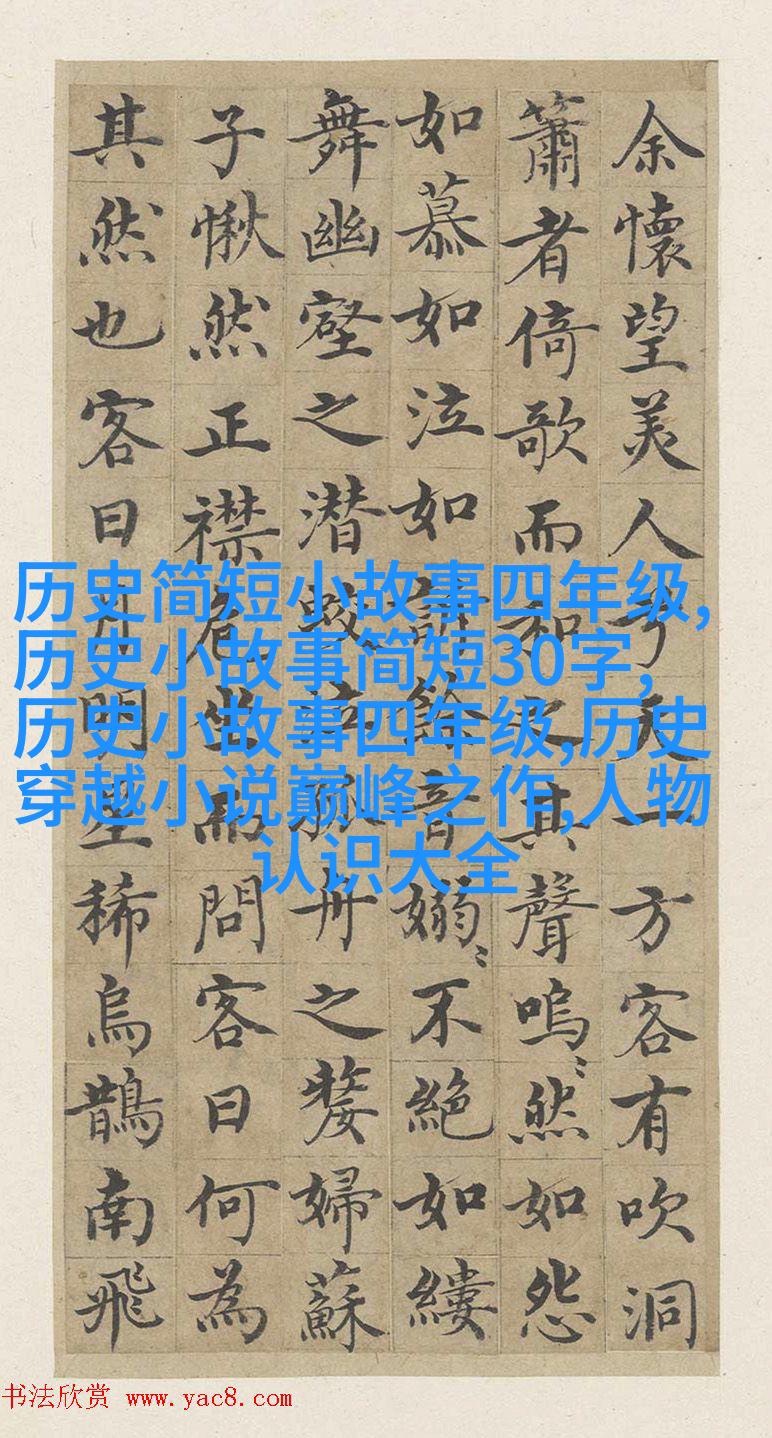 余懷望美人兮天一方客有吹洞
簫者倚歌而和之其聲嗚〻然如怨
如慕如泣如訴餘音嫋〻不絕如縷
舞幽壑之潜蛟泣孤舟之嫠婦蘇
子愀然正襟危坐而問客曰何為
其然也客曰月明星稀烏鵲南飛
历史简短小故事四年级,
历史小故事简短30字,
历史小故事四年级,历史
穿越小说巅峰之作,人物
认识大全
书法欣赏 www.yac8.com